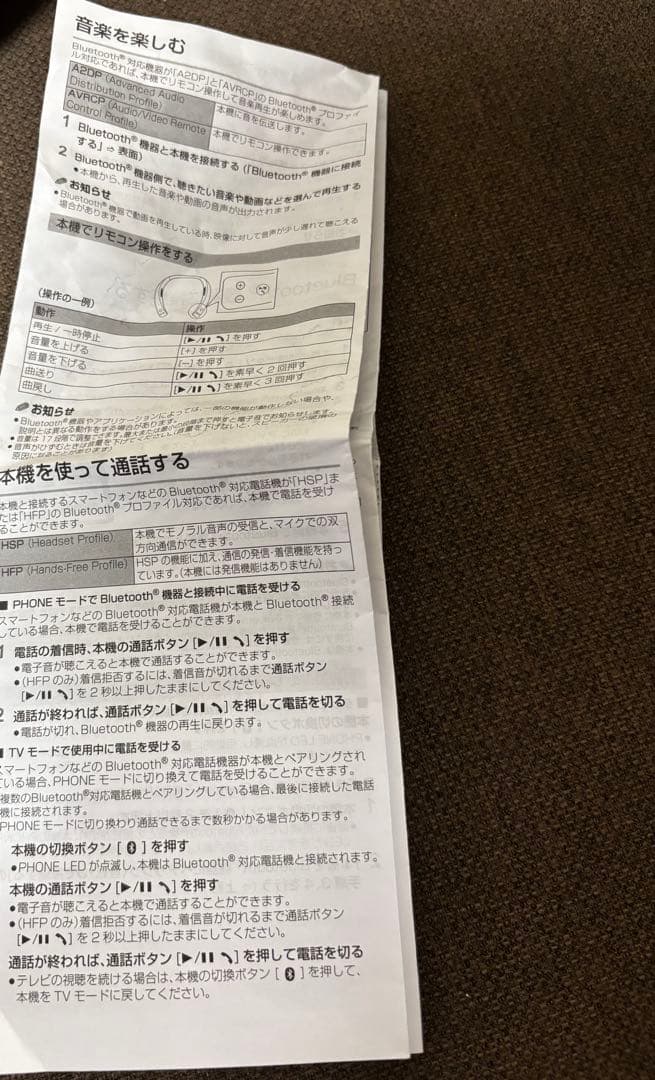 音楽を楽しむ
Bluetooth® 対応機器が「A2DP」と「AVRCP」の Bluetooth® プロファイ
ル対応であれば、本機でリモコン操作して音楽再生が楽しめます。
A2DP (Advanced Audio
Distribution Profile)
本機に音を伝送します。
AVRCP (Audio/Video Remote
Control Profile)
本機でリモコン操作できます。
1 Bluetooth® 機器と本機を接続する(「Bluetooth® 機器に接続
する」⇨ 表面)
2 Bluetooth® 機器側で、聴きたい音楽や動画などを選んで再生する
●本機から、再生した音楽や動画の音声が出力されます。
お知らせ
●Bluetooth® 機器で動画を再生している時、映像に対して音声が少し遅れて聴こえる
場合があります。
本機でリモコン操作をする
(操作の一例)
動作 操作
再生 / 一時停止 [▶/❚❚ ] を押す
音量を上げる [+] を押す
音量を下げる [−] を押す
曲送り [▶/❚❚ ] を素早く 2 回押す
曲戻し [▶/❚❚ ] を素早く 3 回押す
お知らせ
●Bluetooth® 機器やアプリケーションによっては、一部の機能が動作しない場合や、
説明とは異なる動作をする場合があります。
●音量は 17 段階で調整できます。最大または最小の段階まで押すと電子音でお知らせします。
●音声がひずむときは音量を下げてください。(音量を下げないと、スピーカーの破損の
原因になることがあります)
本機を使って通話する
本機と接続するスマートフォンなどの Bluetooth® 対応電話機が「HSP」ま
たは「HFP」の Bluetooth® プロファイル対応であれば、本機で電話を受け
ることができます。
HSP (Headset Profile)
本機でモノラル音声の受信と、マイクでの双
方向通信ができます。
HFP (Hands-Free Profile)
HSP の機能に加え、通信の発信・着信機能を持っ
ています。(本機には発信機能はありません)
■ PHONE モードで Bluetooth® 機器と接続中に電話を受ける
スマートフォンなどの Bluetooth® 対応電話機が本機と Bluetooth® 接続
している場合、本機で電話を受けることができます。
1 電話の着信時、本機の通話ボタン [▶/❚❚ ] を押す
●電子音が聴こえると本機で通話することができます。
●(HFP のみ)着信拒否するには、着信音が切れるまで通話ボタン
[▶/❚❚ ] を 2 秒以上押したままにしてください。
2 通話が終われば、通話ボタン [▶/❚❚ ] を押して電話を切る
●電話が切れ、Bluetooth® 機器の再生に戻ります。
■ TV モードで使用中に電話を受ける
スマートフォンなどの Bluetooth® 対応電話機器が本機とペアリングされ
ている場合、PHONE モードに切り換えて電話を受けることができます。
複数のBluetooth®対応電話機とペアリングしている場合、最後に接続した電話
機に接続されます。
PHONE モードに切り換わり通話できるまで数秒かかる場合があります。
本機の切換ボタン [ ] を押す
●PHONE LED が点滅し、本機は Bluetooth® 対応電話機と接続されます。
本機の通話ボタン [▶/❚❚ ] を押す
●電子音が聴こえると本機で通話することができます。
●(HFP のみ)着信拒否するには、着信音が切れるまで通話ボタン
[▶/❚❚ ] を 2 秒以上押したままにしてください。
通話が終われば、通話ボタン [▶/❚❚ ] を押して電話を切る
●テレビの視聴を続ける場合は、本機の切換ボタン [ ] を押して、
本機を TV モードに戻してください。